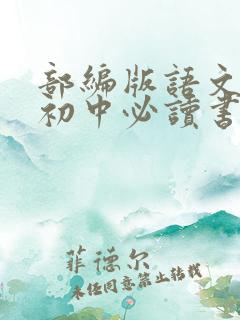 部編版語文
初中必讀書
菲德尔
未经同意禁止转载